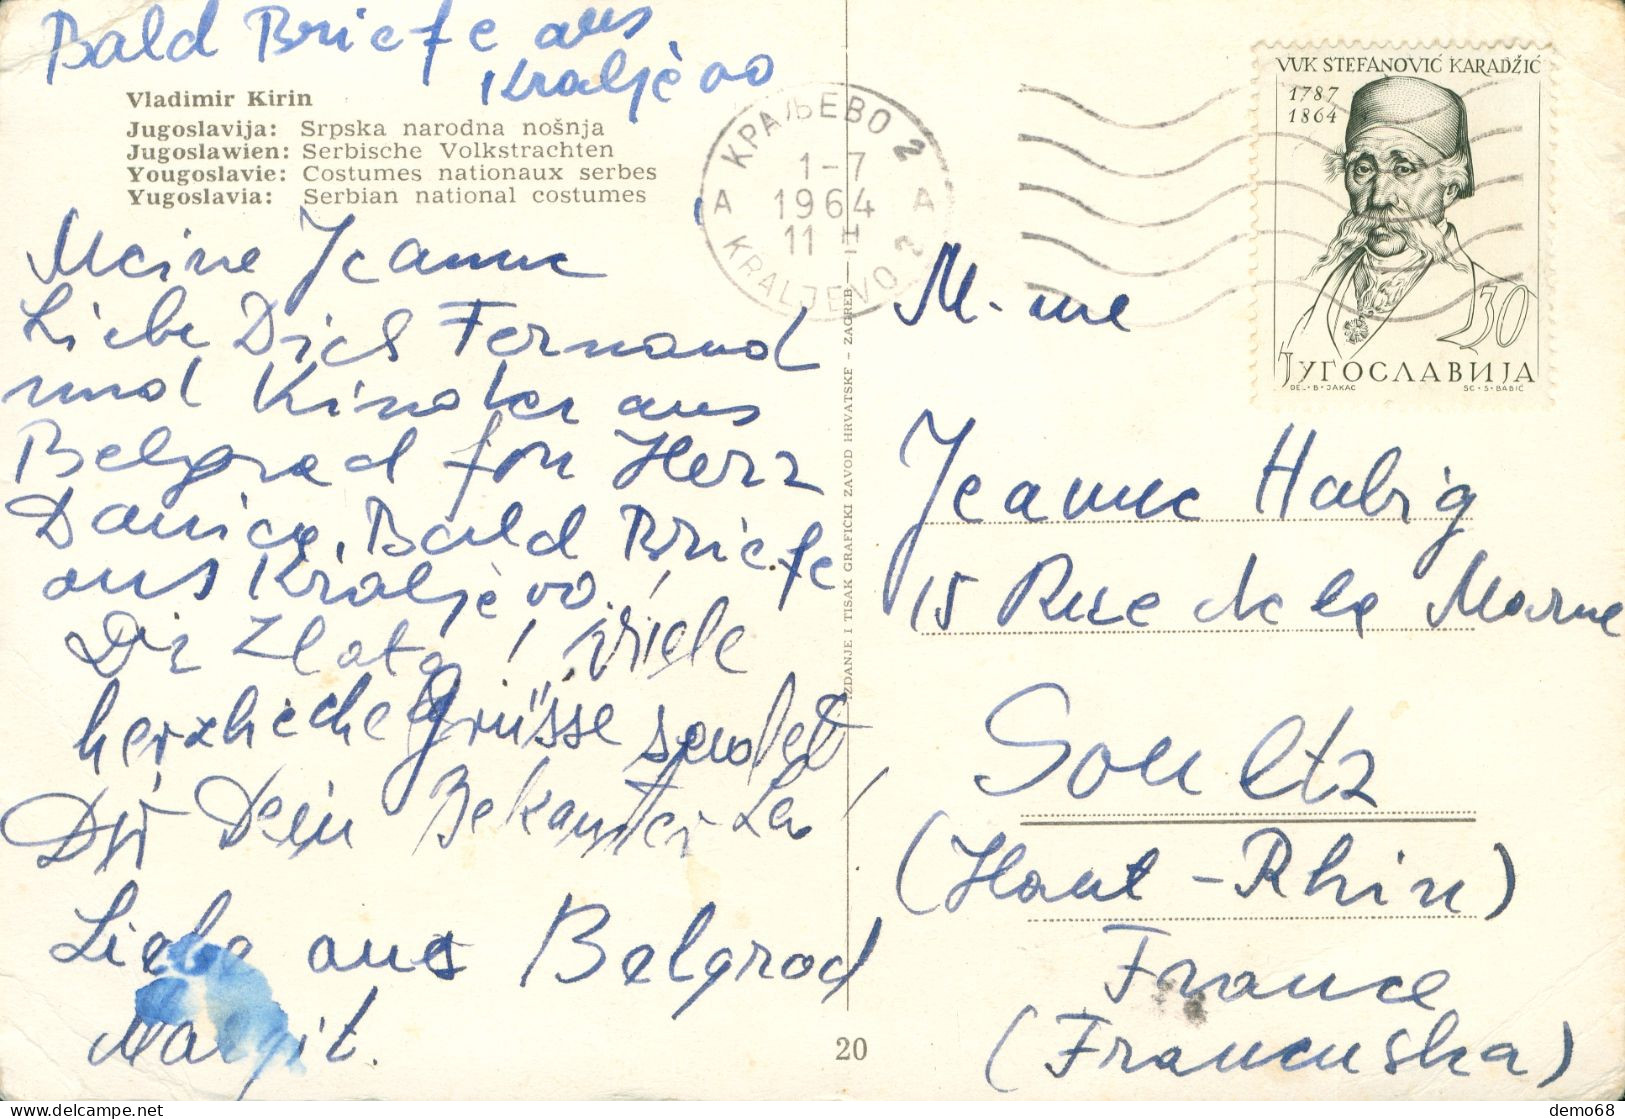 Bald Briefe aus
Kraljèvo
Vladimir Kirin
Jugoslavija: Srpska narodna nošnja
Jugoslawien: Serbische Volkstrachten
Yougoslavie: Costumes nationaux serbes
Yugoslavia: Serbian national costumes
Meine Jeanne
Liebe Dich Fernand
und Kinder aus
Belgrad fon Herz
Danica. Bald Briefe
aus Kraljèvo!
Dir Zlata! viele
herzliche Grüsse sendet
Dir Dein Bekannter
Liebe aus Belgrad
Margit.
КРАЉЕВО 2
A 1-7 A
1964
11 H
KRALJEVO 2
IZDANJE I TISAK GRAFIČKI ZAVOD HRVATSKE – ZAGREB
20
VUK STEFANOVIĆ KARADŽIĆ
1787
1864
30
ЈУГОСЛАВИЈА
DEL·B·JAKAC SC·S·BABIĆ
M-me
Jeanne Habig
15 Rue de la Marne
Soultz
(Haut-Rhin)
France
(Francuska)
demo68